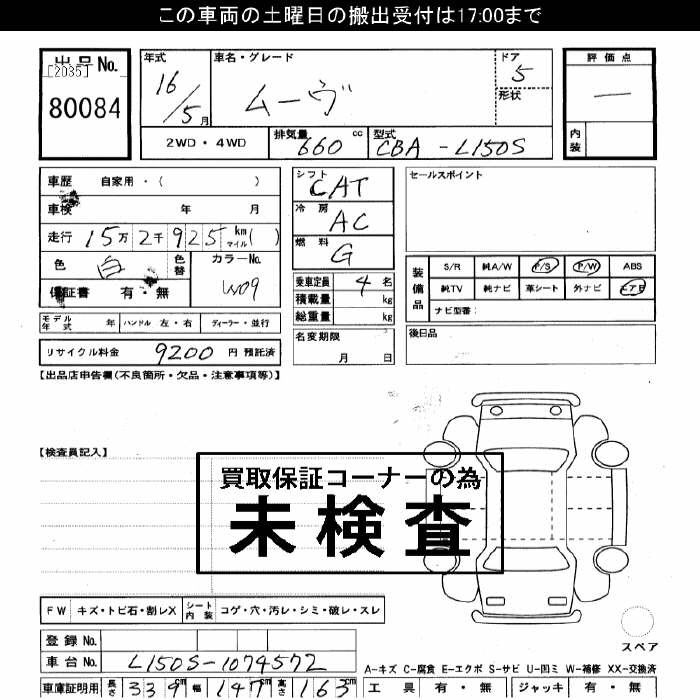 この車両の土曜日の搬出受付は17:00まで
出品No.
[2035]
80084
年式
16/5月
車名・グレード
ムーヴ
ドア
5
形状
評価点
一
内装
2WD・4WD
排気量 660 cc
型式 CBA-L150S
車歴 自家用・( )
車検 年 月
走行 15万2千925 km マイル( )
色 白 色替
カラーNo. W09
保証書 有・無
モデル年式 年 ハンドル 左・右 ディーラー・並行
リサイクル料金 9200 円 預託済
シフト CAT
冷房 AC
燃料 G
乗車定員 4 名
積載量 kg
総重量 kg
名変期限
月 日
セールスポイント
装備品
S/R 純A/W P/S P/W ABS
純TV 純ナビ 革シート 外ナビ エアB
ナビ型番:
後日品
【出品店申告欄(不良箇所・欠品・注意事項等)】
【検査員記入】
買取保証コーナーの為
未検査
FW キズ・トビ石・割レX シート内装 コゲ・穴・汚レ・シミ・破レ・スレ
登録No.
車台No. L150S-1074572
車庫証明用 長さ 339cm 幅 147cm 高さ 163cm
スペア
A-キズ C-腐食 E-エクボ S-サビ U-凹ミ W-補修 XX-交換済
工具 有・無 ジャッキ 有・無